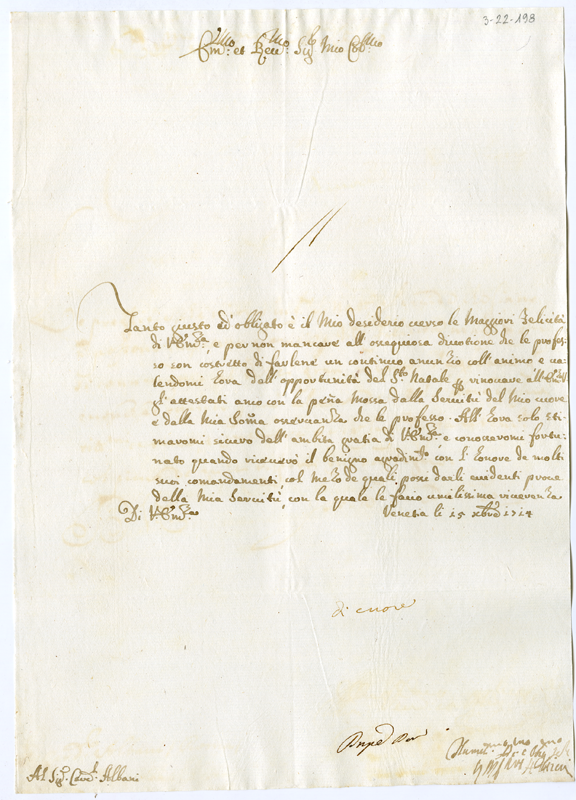 3-22-198
Em.mo et Reu.mo Sig.re Mio Col.mo
Tanto giusto ed obligato è il Mio desiderio uerso le Maggiori Felicità
di V. Em.za, e per non mancare all' ossequiosa diuotione che le profes-
so son costretto di farlene un continuo annunzio coll' animo e ua-
lendomi hora dell' opportunità del S.to Natale rinouare all' E. V.
gl' attestati anco con la pena Mossa dalla Seruitù del Mio cuore
e dalla Mia somma osseruanza che le professo. All' hora solo sti-
maromi sicuro dell' ambita gratia di V. Em.za, e conoscerome fortu-
nato quando riceuerò il benigno agradim.to con l' honore de molti
suoi comandamenti, col Mezo de quali possa darli euidenti proue
della Mia Seruitù, con la quale le facio umilissima riuerenza
Di V. Em.za Venetia li 15 xbre 1714
di cuore
Al Sig.r Card.l Albani